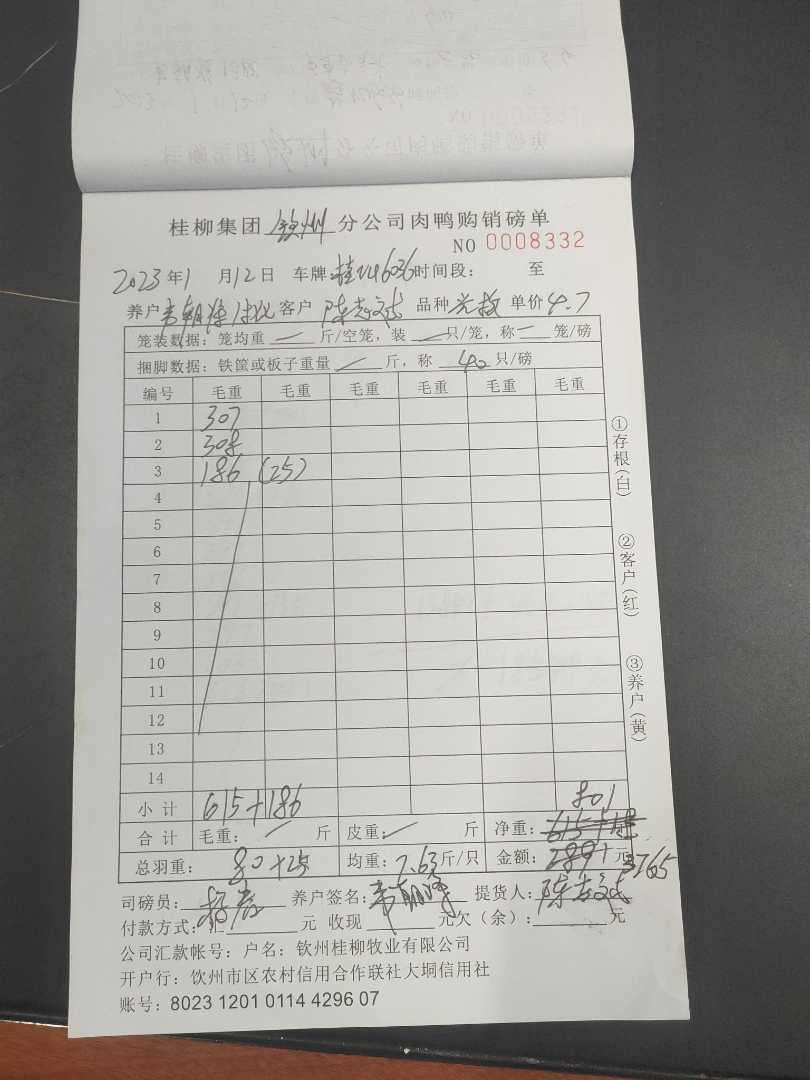 桂柳集团 钦州 分公司肉鸭购销磅单
NO 0008332
2023年1月12日 车牌: 时间段: 至
养户 客户 陈志斌 品种 单价4.7
笼装数据: 笼均重 — 斤/空笼, 装 — 只/笼, 称 — 笼/磅
捆脚数据: 铁筐或板子重量 — 斤, 称 40 只/磅
编号 毛重 毛重 毛重 毛重 毛重 毛重
1 307
2 308
3 186 (25)
4
5
6
7
8
9
10
11
12
13
14
小计 615+186 801
合计 毛重: — 斤 皮重: — 斤 净重:
总羽重: 80+25 均重: 7.63斤/只 金额: 元 3765
司磅员: 养户签名: 提货人:
付款方式: 元 收现 元欠(余): 元
公司汇款帐号: 户名: 钦州桂柳牧业有限公司
开户行: 钦州市区农村信用合作联社大垌信用社
账号: 8023 1201 0114 4296 07
①存根(白)
②客户(红)
③养户(黄)